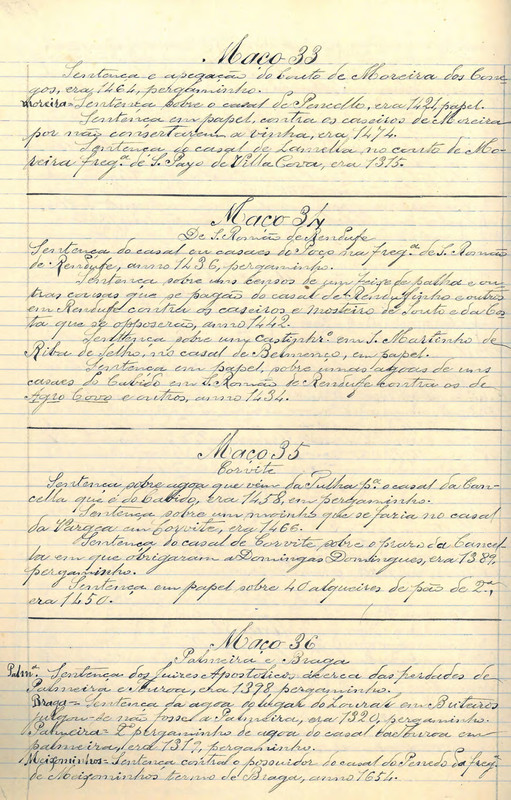 Maço 33
Sentença e apegação do Couto de Moreira dos Cone-
gos, era 1464, pergaminho.
Moreira = Sentença sobre o casal de Pencello, era 1421 papel.
Sentença em papel, contra os caseiros de Moreira
por não consertarem a vinha, era 1474.
Sentença do casal de Lamella, no couto de Mo-
reira freg.ª de S. Payo de Villa Cova, era 1315.
Maço 34
De S. Romão de Rendufe
Sentença do casal ou casaes do Poço na freg.ª de S. Romão
de Rendufe, anno 1436, pergaminho.
Sentença sobre uns censos de um feixe de palha e ou-
tras cousas que se pagão do casal de Rendufinho e outro
em Rendufe contra os caseiros e mosteiro de Souto e da Cos-
ta que se opposerão, anno 1442.
Sentença sobre um castinhr.º em S. Martinho de
Riba de Selho, no casal de Belmenço, em papel.
Sentença em papel, sobre umas agoas de uns
casaes do Cabido em S. Romão de Rendufe contra os de
Agro Covo e outros, anno 1434.
Maço 35
Corvite
Sentença sobre agoa que vem da Pulha p.ª o casal da Can-
cella que é do Cabido, era 1458, em pergaminho.
Sentença sobre um moinho que se faria no casal
da Vargea em Corvite, era 1466.
Sentença do casal de Corvite, sobre o prazo da Cancel-
la em que obrigaram a Domingas Domingues, era 1389,
pergaminho.
Sentença em papel sobre 40 alqueires de pão de 2.ª,
era 1450.
Maço 36
Palmeira e Braga
Palm.ª Sentença dos Juizes Apostolicos ácerca das herdades de
Palmeira e Auroa, era 1398 pergaminho.
Braga = Sentença da agoa do lugar do Loural em Briteiros
julgou-se não fosse a Palmeira, era 1320, pergaminho.
Palmeira = 2.º pergaminho de agoa do casal da em
palmeira, era 1317, pergaminho.
Meixominhos = Sentença contra o possuidor do casal do Penedo da freg.ª
de Meixominhos termo de Braga, anno 1654.